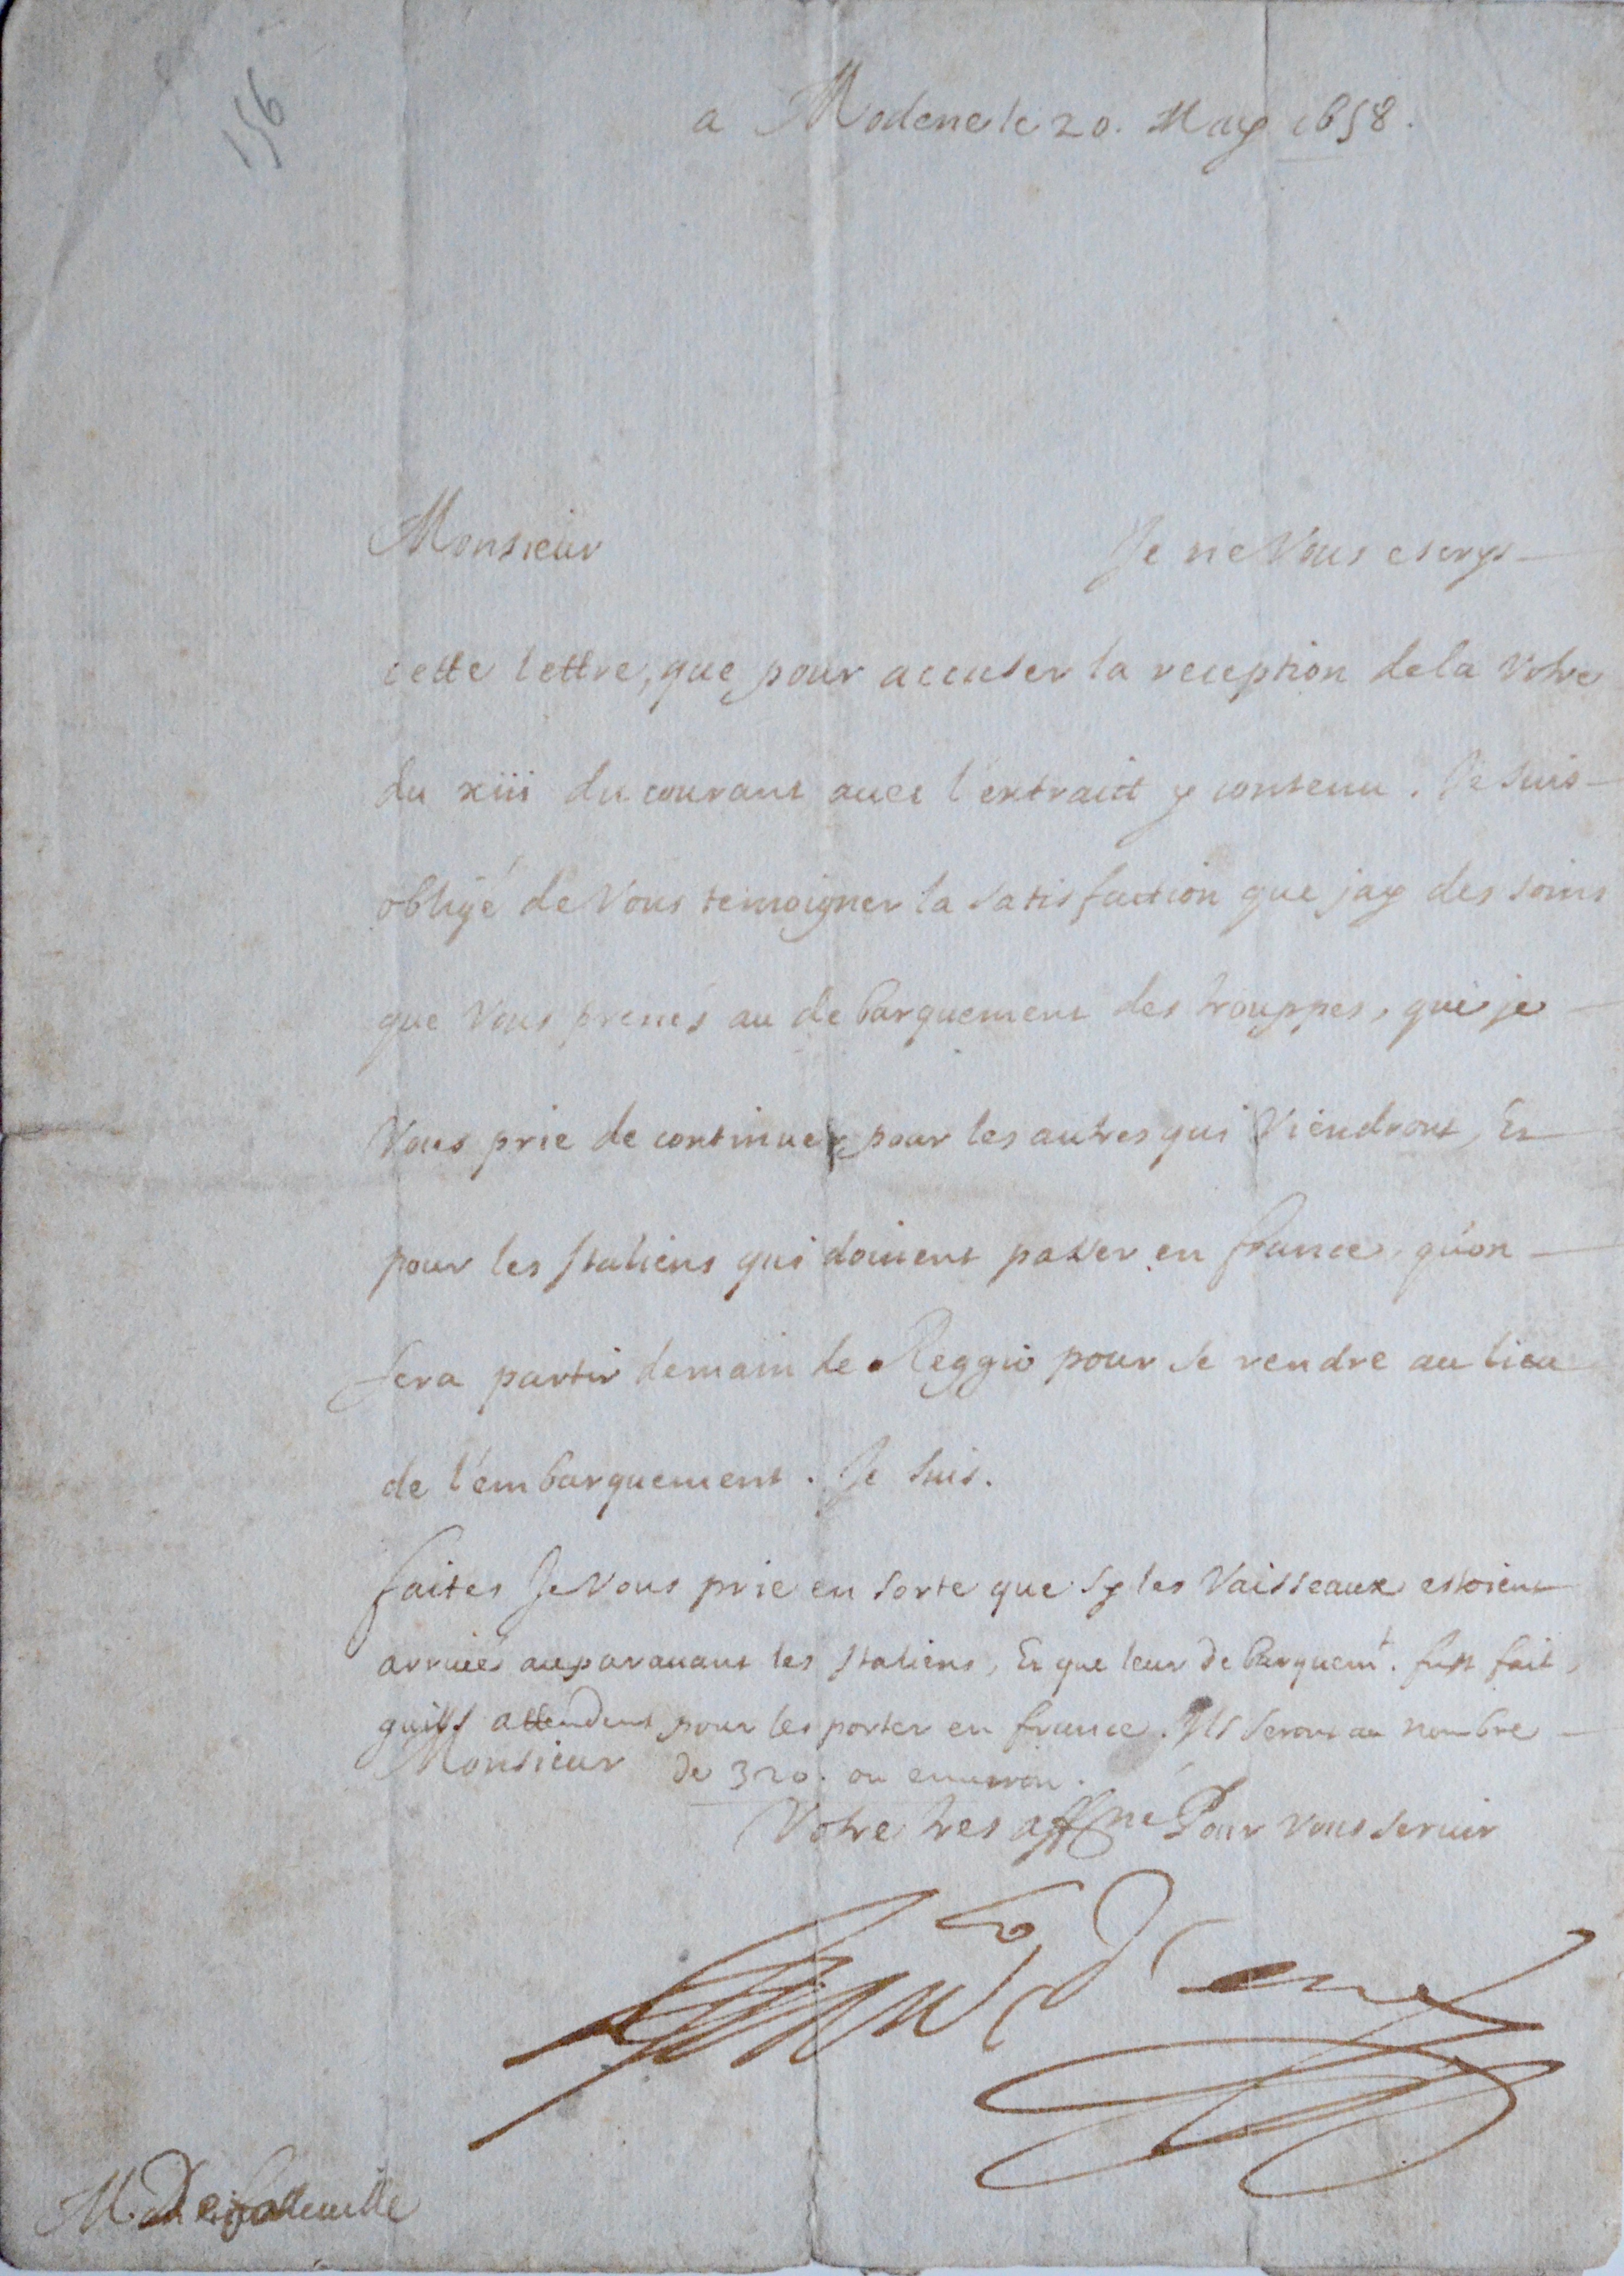 156
a Modene le 20. May 1658.
Monsieur Je ne Vous escrys
cette lettre, que pour accuser la reception de la Votre
du xiii du courant auec l'extraict y contenu. Je suis
obligé de Vous temoigner la satisfaction que jay des soins
que Vous prenés au debarquement des trouppes, que je
Vous prie de continuer pour les autres qui Viendront, Et
pour les Italiens qui doiuent passer en france, qu'on
fera partir demain de Reggio pour se rendre au lieu
de l'embarquement. Je suis.
faites Je Vous prie en sorte que sy les Vaisseaux estoient
arriués auparauant les Italiens, Et que leur debarquemt. fust fait,
quils attendent pour les porter en france. Ils seront au nombre
Monsieur de 320. ou enuiron.
Votre tres affné Pour vous seruir
M. de